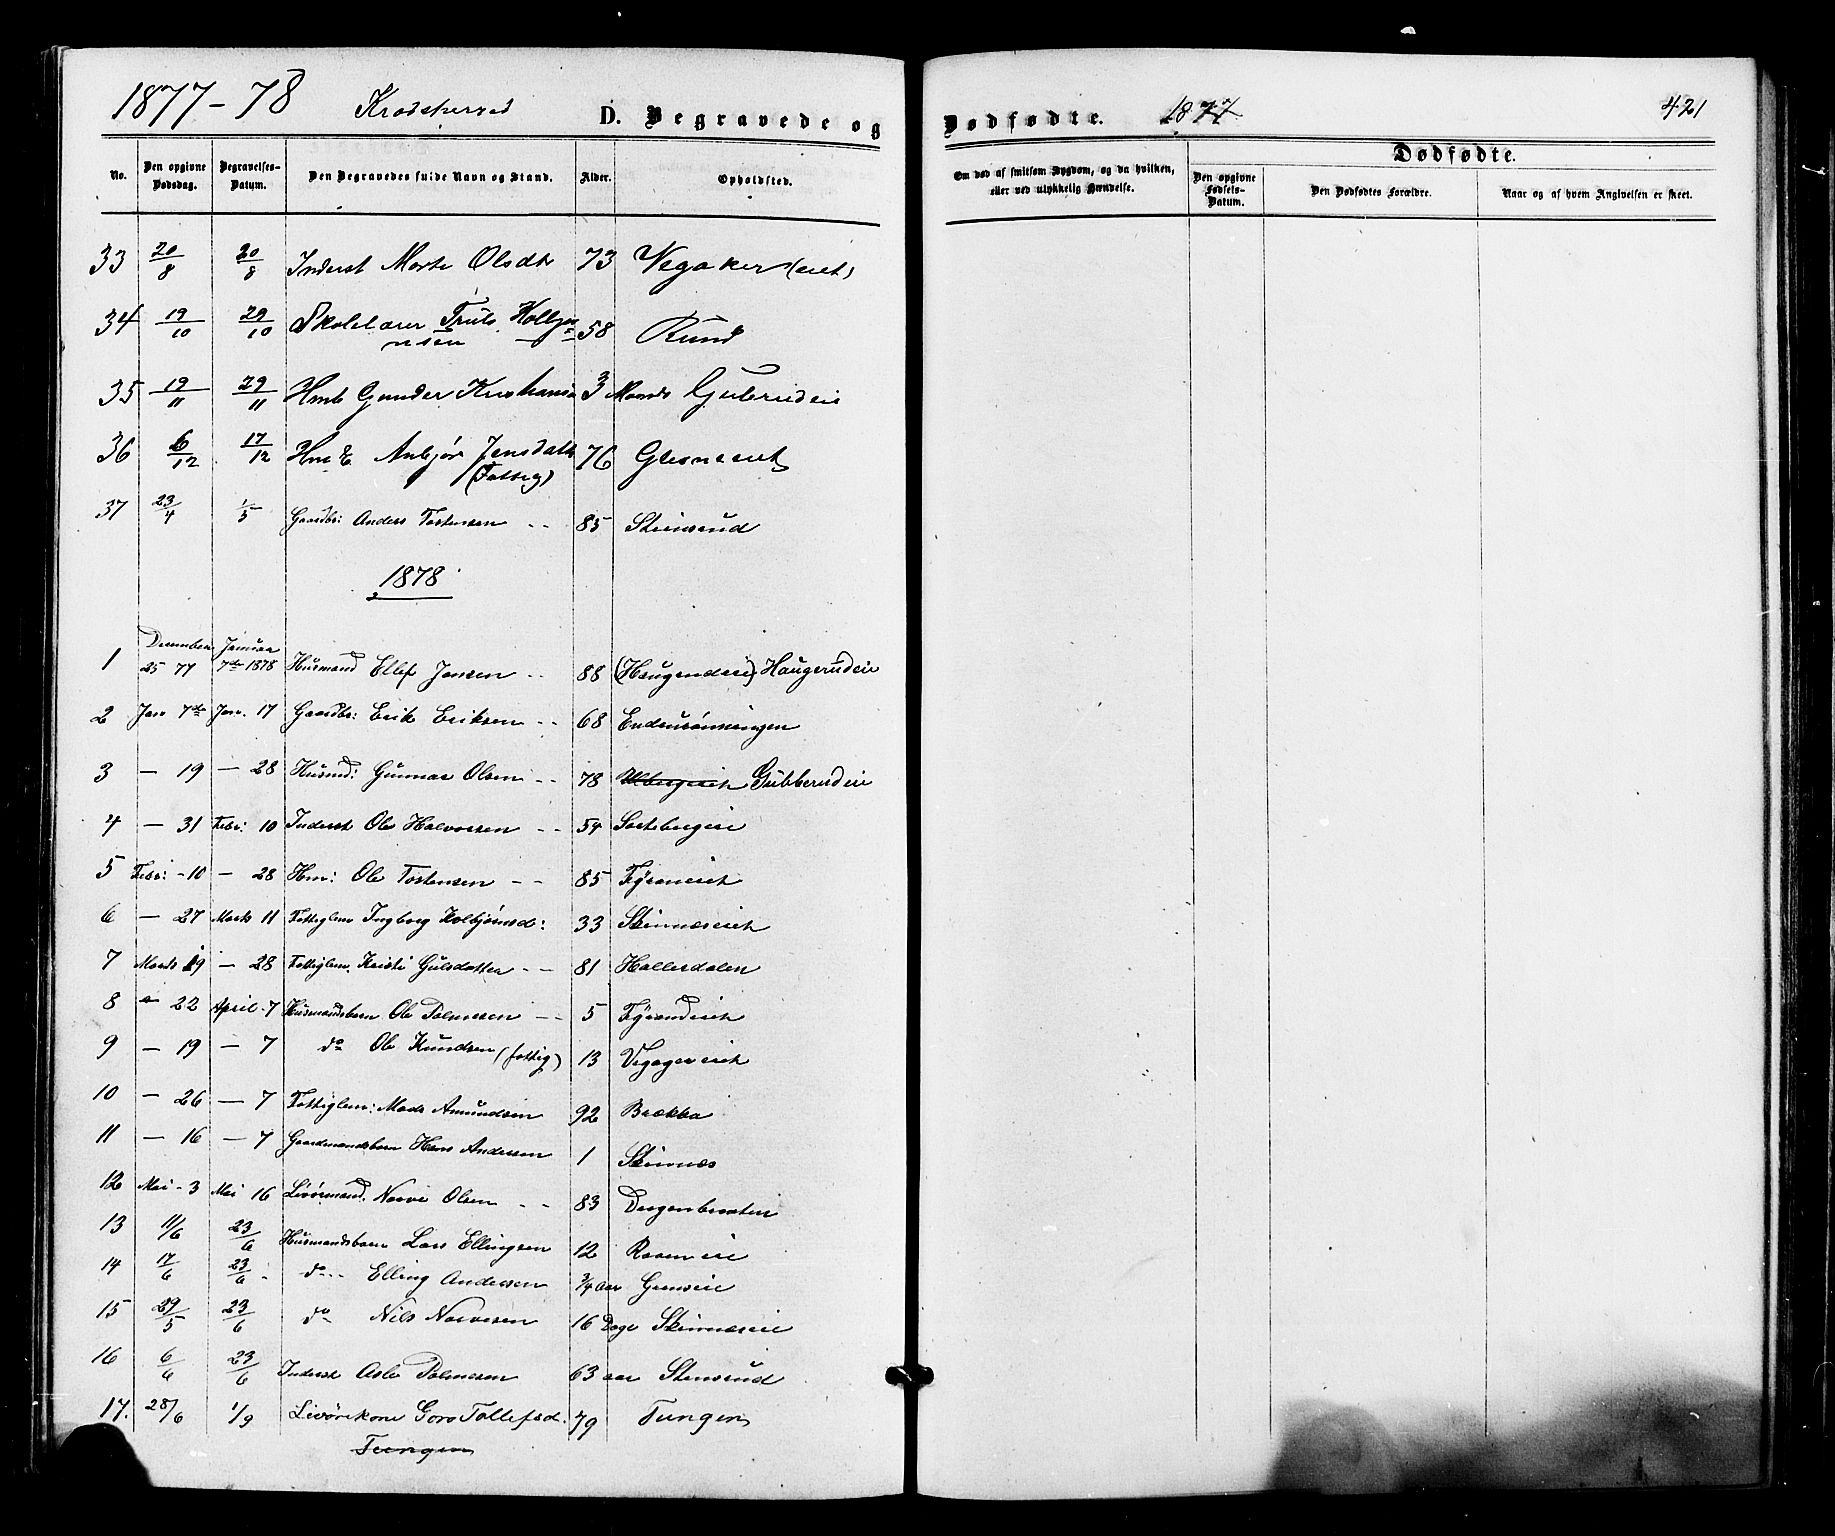 1877-78 Krødsherred D. Begravede og Dødfødte. 1877 421
No. Den opgivne Dødsdag. Begravelses-Datum. Den Begravedes fulde Navn og Stand. Alder. Opholdsted. Om død af smitsom Sygdom, og da hvilken, eller ved ulykkelig Hændelse. Dødfødte. Den opgivne Fødsels-Datum. Den Dødfødtes Forældre. Naar og af hvem Angivelsen er skeet.
33 20/8 20/8 Inderst Olsdtr 73 Vegaker (eiet)
34 19/10 29/10 Skolelærer Truls Kolbjø=
rnsen 58 Rund
35 19/11 29/11 Hmb Gunder 3 Maaneds Gubrudeie
36 6/12 17/12 Anbjør Jensdatt 76 Glesneeiet
(Fattig)
37 23/4 1/5 Gaardbr: Anders Tostensen -- 85 Steinsrud
1878
1 December 25 77 Januar 7de 1878 Husmand Ellef Jonsen -- 88 Haugerudeie
2 Jan 7de Jan. 17 Gaardbr: Erik Eriksen -- 68
3 — 19 — 28 Husmd: Gunnar Olsen -- 78 Gubberudeie
4 — 31 Febr: 10 Inderst Ole Halvorsen -- 54
5 Febr: -10 — 28 Hm: Ole Tostensen -- 85
6 — 27 Marts 11 Fattiglem Ingborg Kolbjørnsd: 33 Skinnæseiet
7 Marts 19 — 28 Fattiglem. Kristi Gulsdatter -- 81 Hallesdalen
8 — 22 April -7 Husmandsbarn Ole -- 5
9 — 19 — 7 do Ole Knudsen (fattig) 13 Vegagereiet
10 — 26 — 7 Fattiglem: Mads Amundsen 92 Brækka
11 — 16 — 7 Gaardmandsbarn Hans Andersen 1 Skinnæs
12 Mai - 3 Mai 16 Livørmand. Narve Olsen -- 83
13 11/6 23/6 Husmandsbarn Lars Ellingsen 12
14 17/6 23/6 do -- Elling Andersen 3/4 aar
15 29/5 23/6 do Nils Narvesen 16 Dage Skinnæseie
16 6/6 23/6 Inderst Asle 63 aar Stensrud
17. 28/6 1/9 Livørekone Goro Tollefsd. 79 Tungen
Tungen